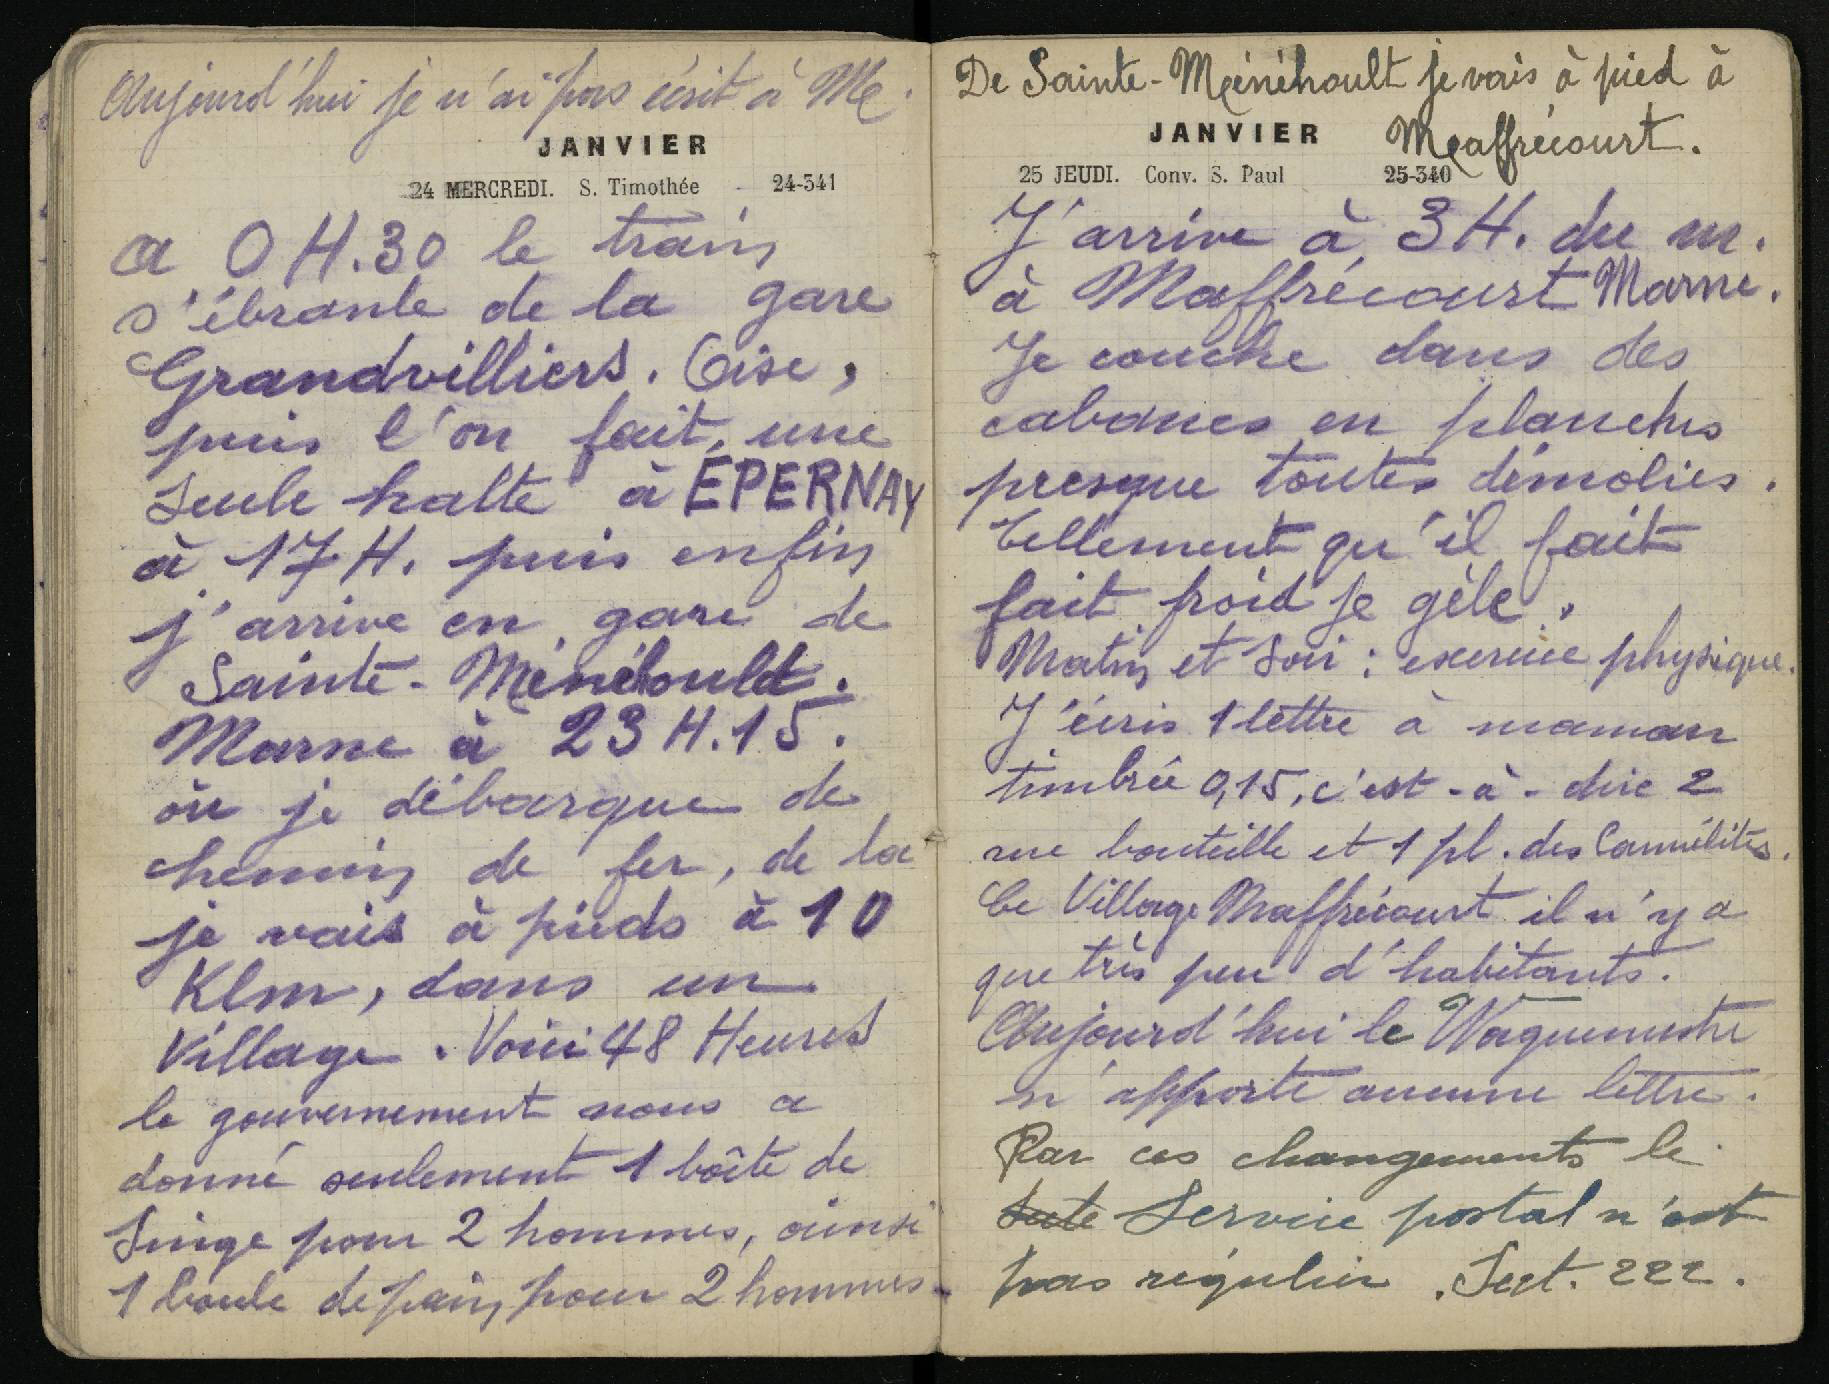 Aujourd'hui je n'ai pas écrit à Me.
JANVIER
24 MERCREDI. S. Timothée 24-341
a 0 H.30 le train
s'ébranle de la gare
Grandvilliers. Oise,
puis l'on fait, une
seule halte à ÉPERNAY
à 17 H. puis enfin
j'arrive en gare de
Sainte-Ménéhould.
Marne à 23 H.15.
où je débarque de
chemin de fer, de la
je vais à pieds à 10
Klm, dans un
Village. Voici 48 Heures
le gouvernement nous a
donné seulement 1 boîte de
Singe pour 2 hommes, ainsi
1 boule de pain, pour 2 hommes
De Sainte-Ménéhoult je vais à pied à
Maffrécourt.
JANVIER
25 JEUDI. Conv. S. Paul 25-340
J'arrive à 3 H. du m.
à Maffrécourt Marne.
Je couche dans des
cabanes en planches
presque toutes démolies.
Tellement qu'il fait
fait froid je gèle.
Matin et Soir : exercice physique.
J'écris 1 lettre à maman
timbrée 0,15, c'est-à-dire 2
rue bouteille et 1 pl. des Carmélites.
Ce Village Maffrécourt il n'y a
que très peu d'habitants.
Aujourd'hui le Waguemestre
n'apporte aucune lettre.
Par ces changements le
Service postal n'est
pas régulier. Sect. 222.